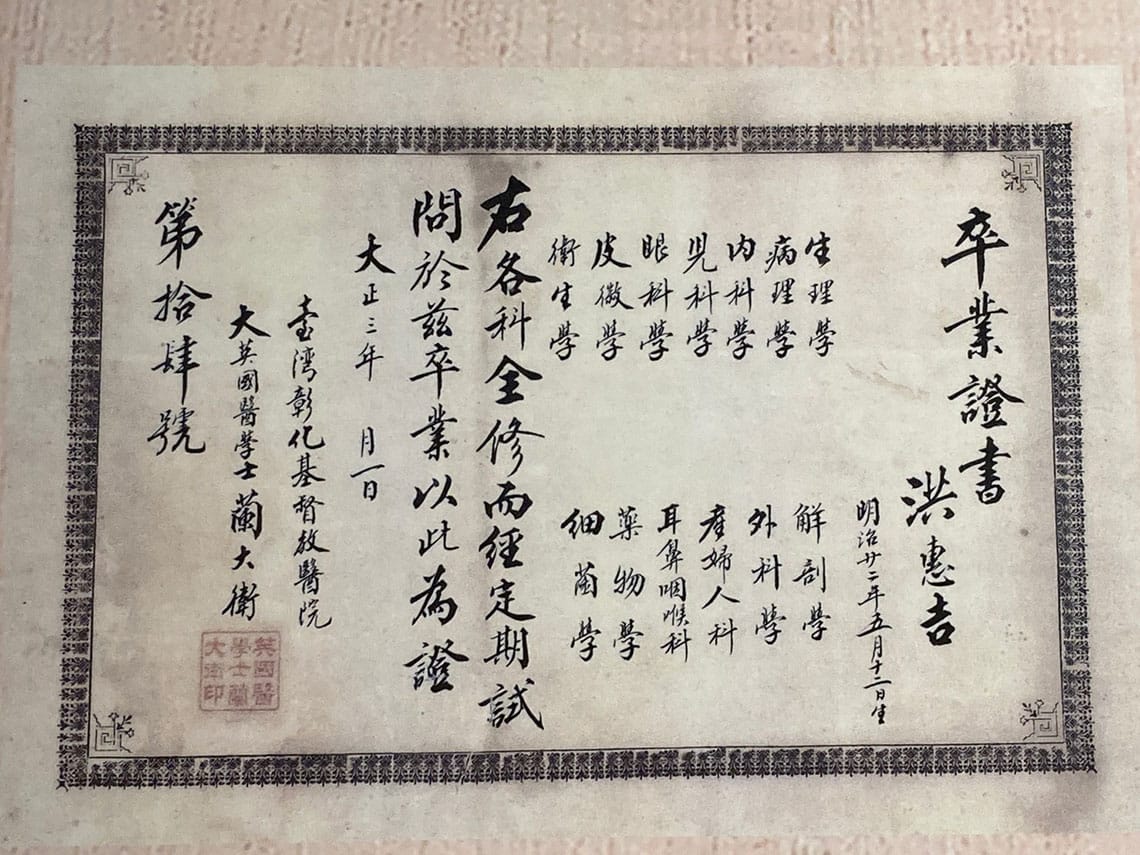 卒業證書
洪惠吉
明治廿二年五月十二日生
生理學
解剖學
病理學
外科學
内科學
產婦人科
児科學
耳鼻咽喉科
眼科學
藥物學
皮黴學
細菌學
衛生學
右各科全修而經定期試
問於茲卒業以此為證
大正三年 月一日
臺灣彰化基督教醫院
大英國醫學士蘭大衛
英國醫
學士蘭
大衛印
第拾肆號